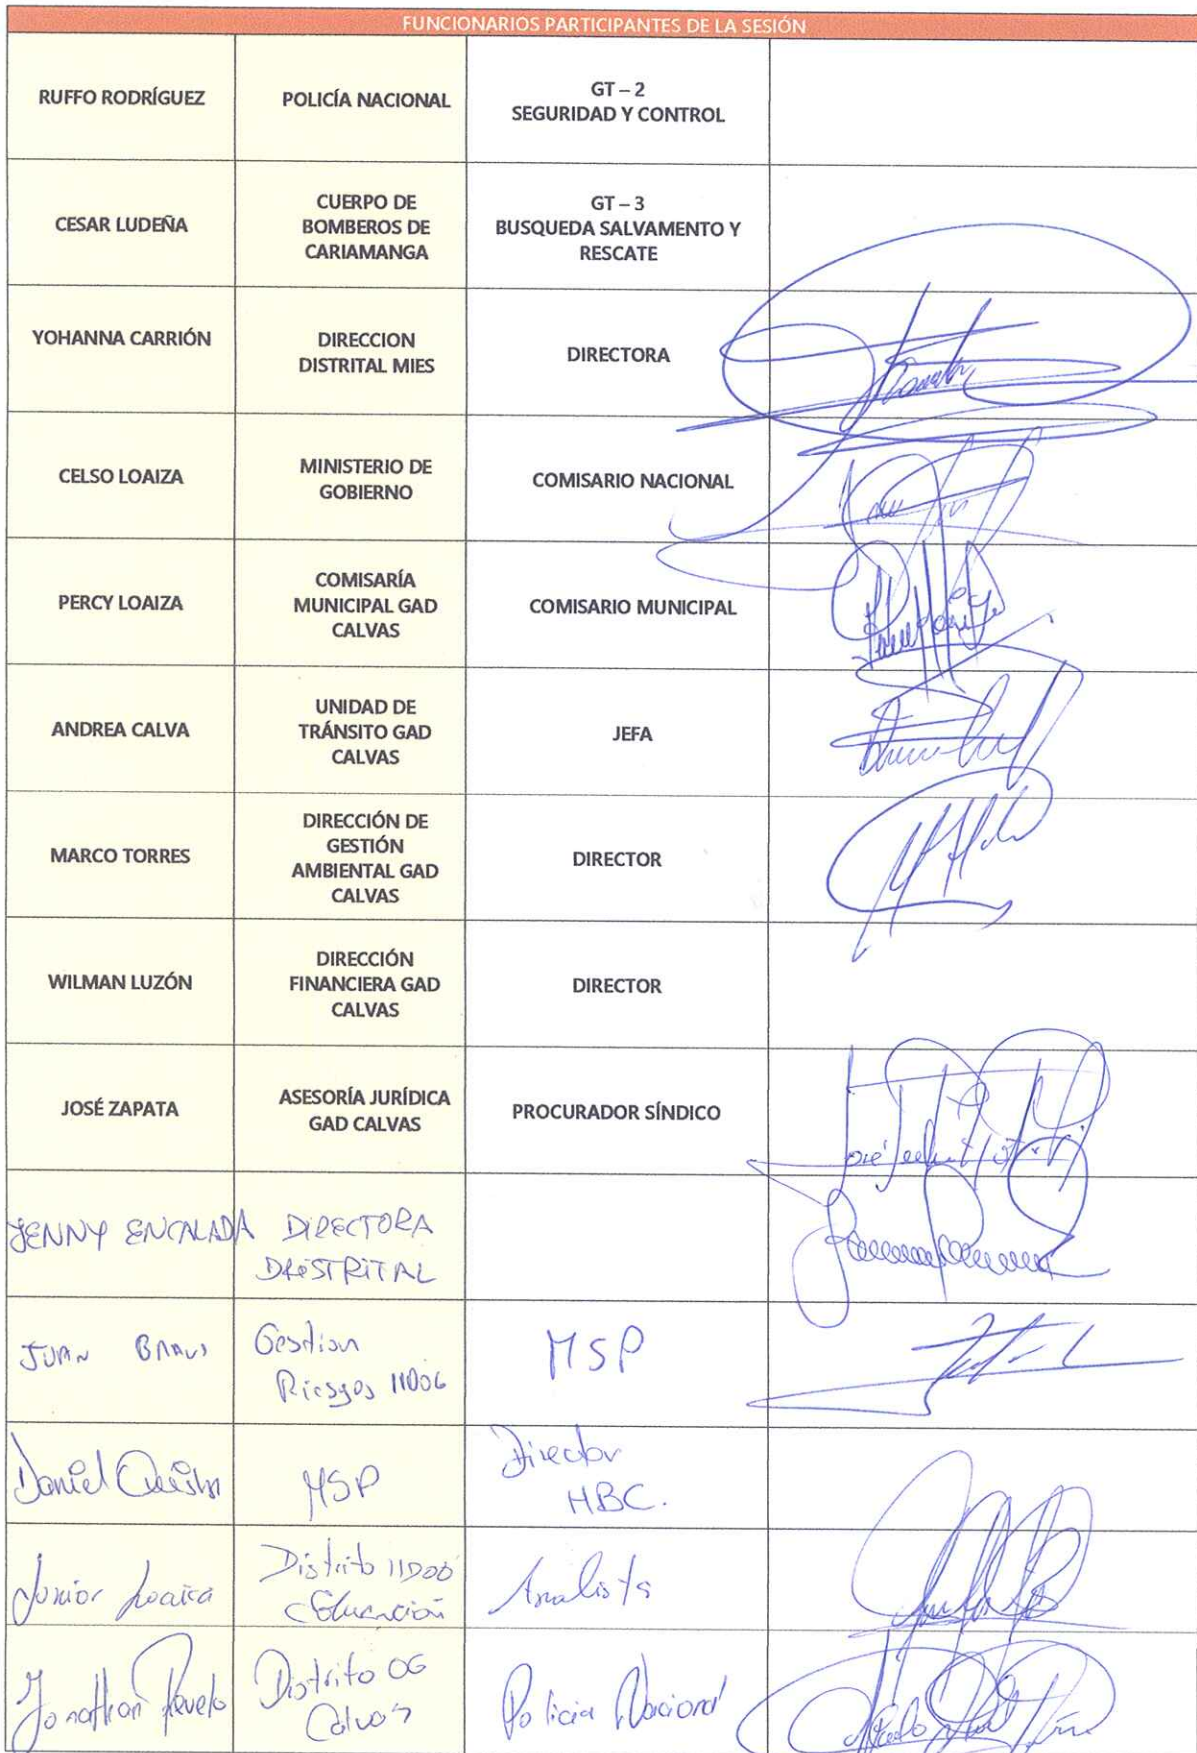 FUNCIONARIOS PARTICIPANTES DE LA SESIÓN
RUFFO RODRÍGUEZ
POLICÍA NACIONAL
GT – 2
SEGURIDAD Y CONTROL
CESAR LUDEÑA
CUERPO DE
BOMBEROS DE
CARIAMANGA
GT – 3
BUSQUEDA SALVAMENTO Y
RESCATE
YOHANNA CARRIÓN
DIRECCION
DISTRITAL MIES
DIRECTORA
CELSO LOAIZA
MINISTERIO DE
GOBIERNO
COMISARIO NACIONAL
PERCY LOAIZA
COMISARÍA
MUNICIPAL GAD
CALVAS
COMISARIO MUNICIPAL
ANDREA CALVA
UNIDAD DE
TRÁNSITO GAD
CALVAS
JEFA
MARCO TORRES
DIRECCIÓN DE
GESTIÓN
AMBIENTAL GAD
CALVAS
DIRECTOR
WILMAN LUZÓN
DIRECCIÓN
FINANCIERA GAD
CALVAS
DIRECTOR
JOSÉ ZAPATA
ASESORÍA JURÍDICA
GAD CALVAS
PROCURADOR SÍNDICO
JENNY ENCALADA
DIRECTORA
DISTRITAL
JUAN BRAVO
Gestion
Riesgos 11D06
MSP
Daniel
MSP
Director
HBC.
Junior Loaiza
Distrito 11D06
Educación
Analista
Jonathan Revelo
Distrito 06
Calvas
Policia Nacional